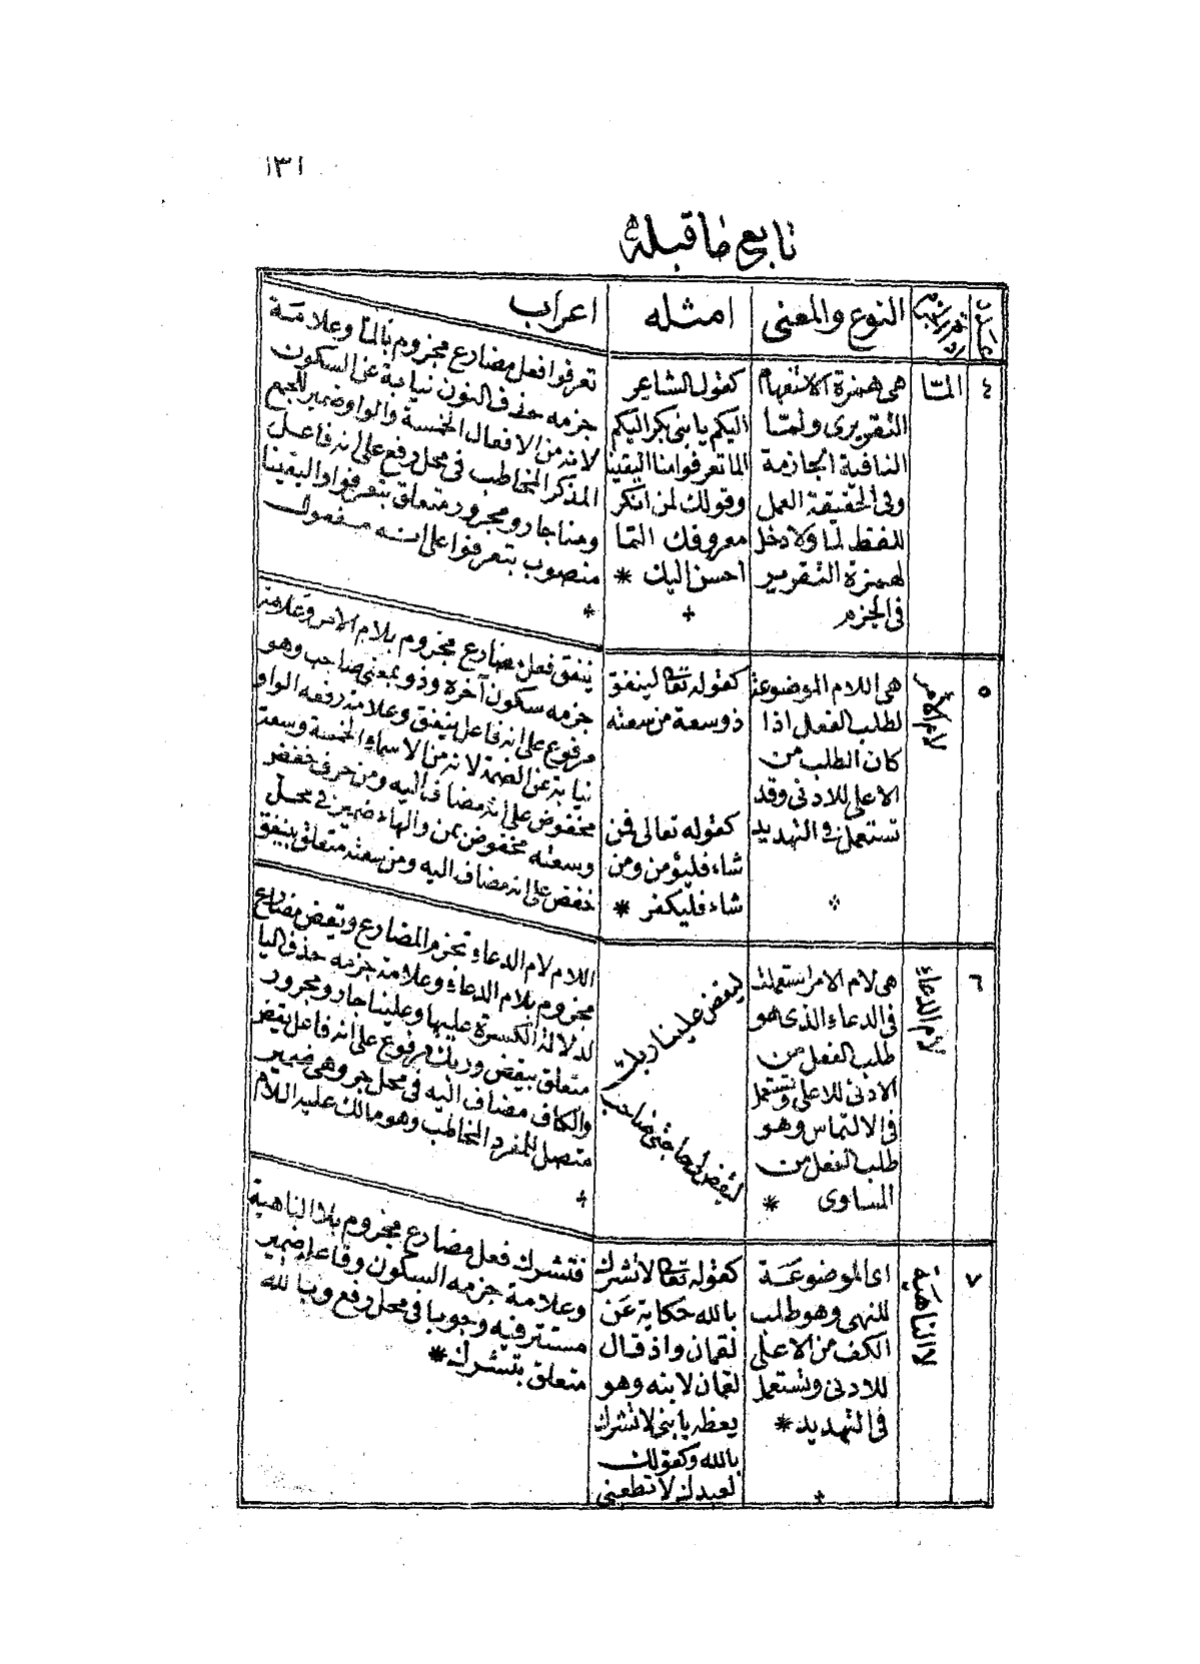 ١٣١
تابع ماقبله
النوع والمعنى
امثله
اعراب
٤
المّا
هى همزة الاستفهام
التقريرى ولمّا
النافية الجازمة
وفى الحقيقة العمل
للفظ لما ولا دخل
لهمزة التقرير
فى الجزم
كقول الشاعر
اليكم يا بنى بكر اليكم
الما تعرفوا منا اليقينا
وقولك لمن انكر
معروفك المّا
احسن اليك *
تعرفوا فعل مضارع مجزوم بالمّا وعلامة
جزمه حذف النون نيابة عن السكون
لانه من الافعال الخمسة والواو ضمير الجمع
المذكر المخاطب فى محل رفع على انه فاعل
ومنا جار ومجرور متعلق بتعرفوا واليقينا
منصوب بتعرفوا على انه مفعول
*
٥
لام الامر
هى اللام الموضوعة
لطلب الفعل اذا
كان الطلب من
الاعلى للادنى وقد
تستعمل فى التهديد
كقوله تعالى لينفق
ذو سعة من سعته
كقوله تعالى فمن
شاء فليؤمن ومن
شاء فليكفر *
ينفق فعل مضارع مجزوم بلام الامر وعلامة
جزمه سكون آخره وذو بمعنى صاحب وهو
مرفوع على انه فاعل ينفق وعلامة رفعه الواو
نيابة عن الضمة لانه من الاسماء الخمسة وسعة
مخفوض على انه مضاف اليه ومن حرف خفض
وسعته مخفوض بمن والهاء ضمير فى محل
خفض على انه مضاف اليه ومن سعته متعلق بينفق
٦
لام الدعاء
هى لام الامر استعملت
فى الدعاء الذى هو
طلب الفعل من
الادنى للاعلى وتستعمل
فى الالتماس وهو
طلب الفعل من
المساوى *
ليقض علينا ربك
لتقض لى حاجتى يا صاحب
اللام لام الدعاء تجزم المضارع ويقض مضارع
مجزوم بلام الدعاء وعلامة جزمه حذف اليا
لدلالة الكسرة عليها وعلينا جار ومجرور
متعلق بيقض وربك مرفوع على انه فاعل يقض
والكاف مضاف اليه فى محل جر وهى ضمير
متصل للمفرد المخاطب وهو مالك عليه السلام
٧
لا الناهية
اى الموضوعة
للنهى وهو طلب
الكف من الاعلى
للادنى وتستعمل
فى التهديد *
كقوله تعالى لا تشرك
بالله حكاية عن
لقمان واذ قال
لقمان لابنه وهو
يعظه يا بنى لا تشرك
بالله وكقولك
لعبدك لا تطعنى
فتشرك فعل مضارع مجزوم بلا الناهية
وعلامة جزمه السكون وفاعله ضمير
مستتر فيه وجوبا فى محل رفع وبالله
متعلق بتشرك *